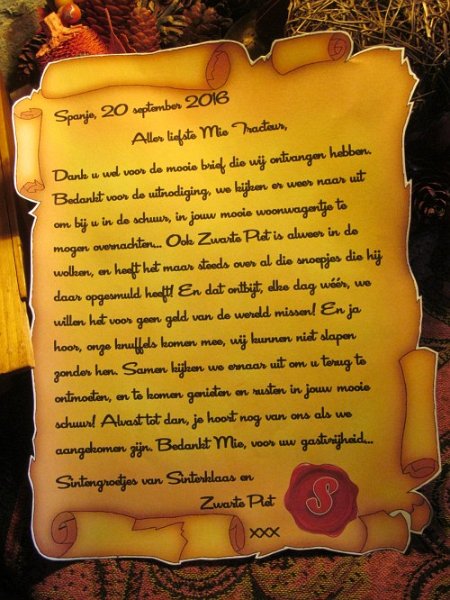 Spanje, 20 september 2016
Aller liefste Mie Tracteur,
Dank u wel voor de mooie brief die wij ontvangen hebben.
Bedankt voor de uitnodiging, we kijken er weer naar uit
om bij u in de schuur, in jouw mooie woonwagentje te
mogen overnachten... Ook Zwarte Piet is alweer in de
wolken, en heeft het maar steeds over al die snoepjes die hij
daar opgesmuld heeft! En dat ontbijt, elke dag wéér, we
willen het voor geen geld van de wereld missen! En ja
hoor, onze knuffels komen mee, wij kunnen niet slapen
zonder hen. Samen kijken we ernaar uit om u terug te
ontmoeten, en te komen genieten en rusten in jouw mooie
schuur! Alvast tot dan, je hoort nog van ons als we
aangekomen zijn. Bedankt Mie, voor uw gastvrijheid...
Sintengroetjes van Sinterklaas en
Zwarte Piet
S
xxx